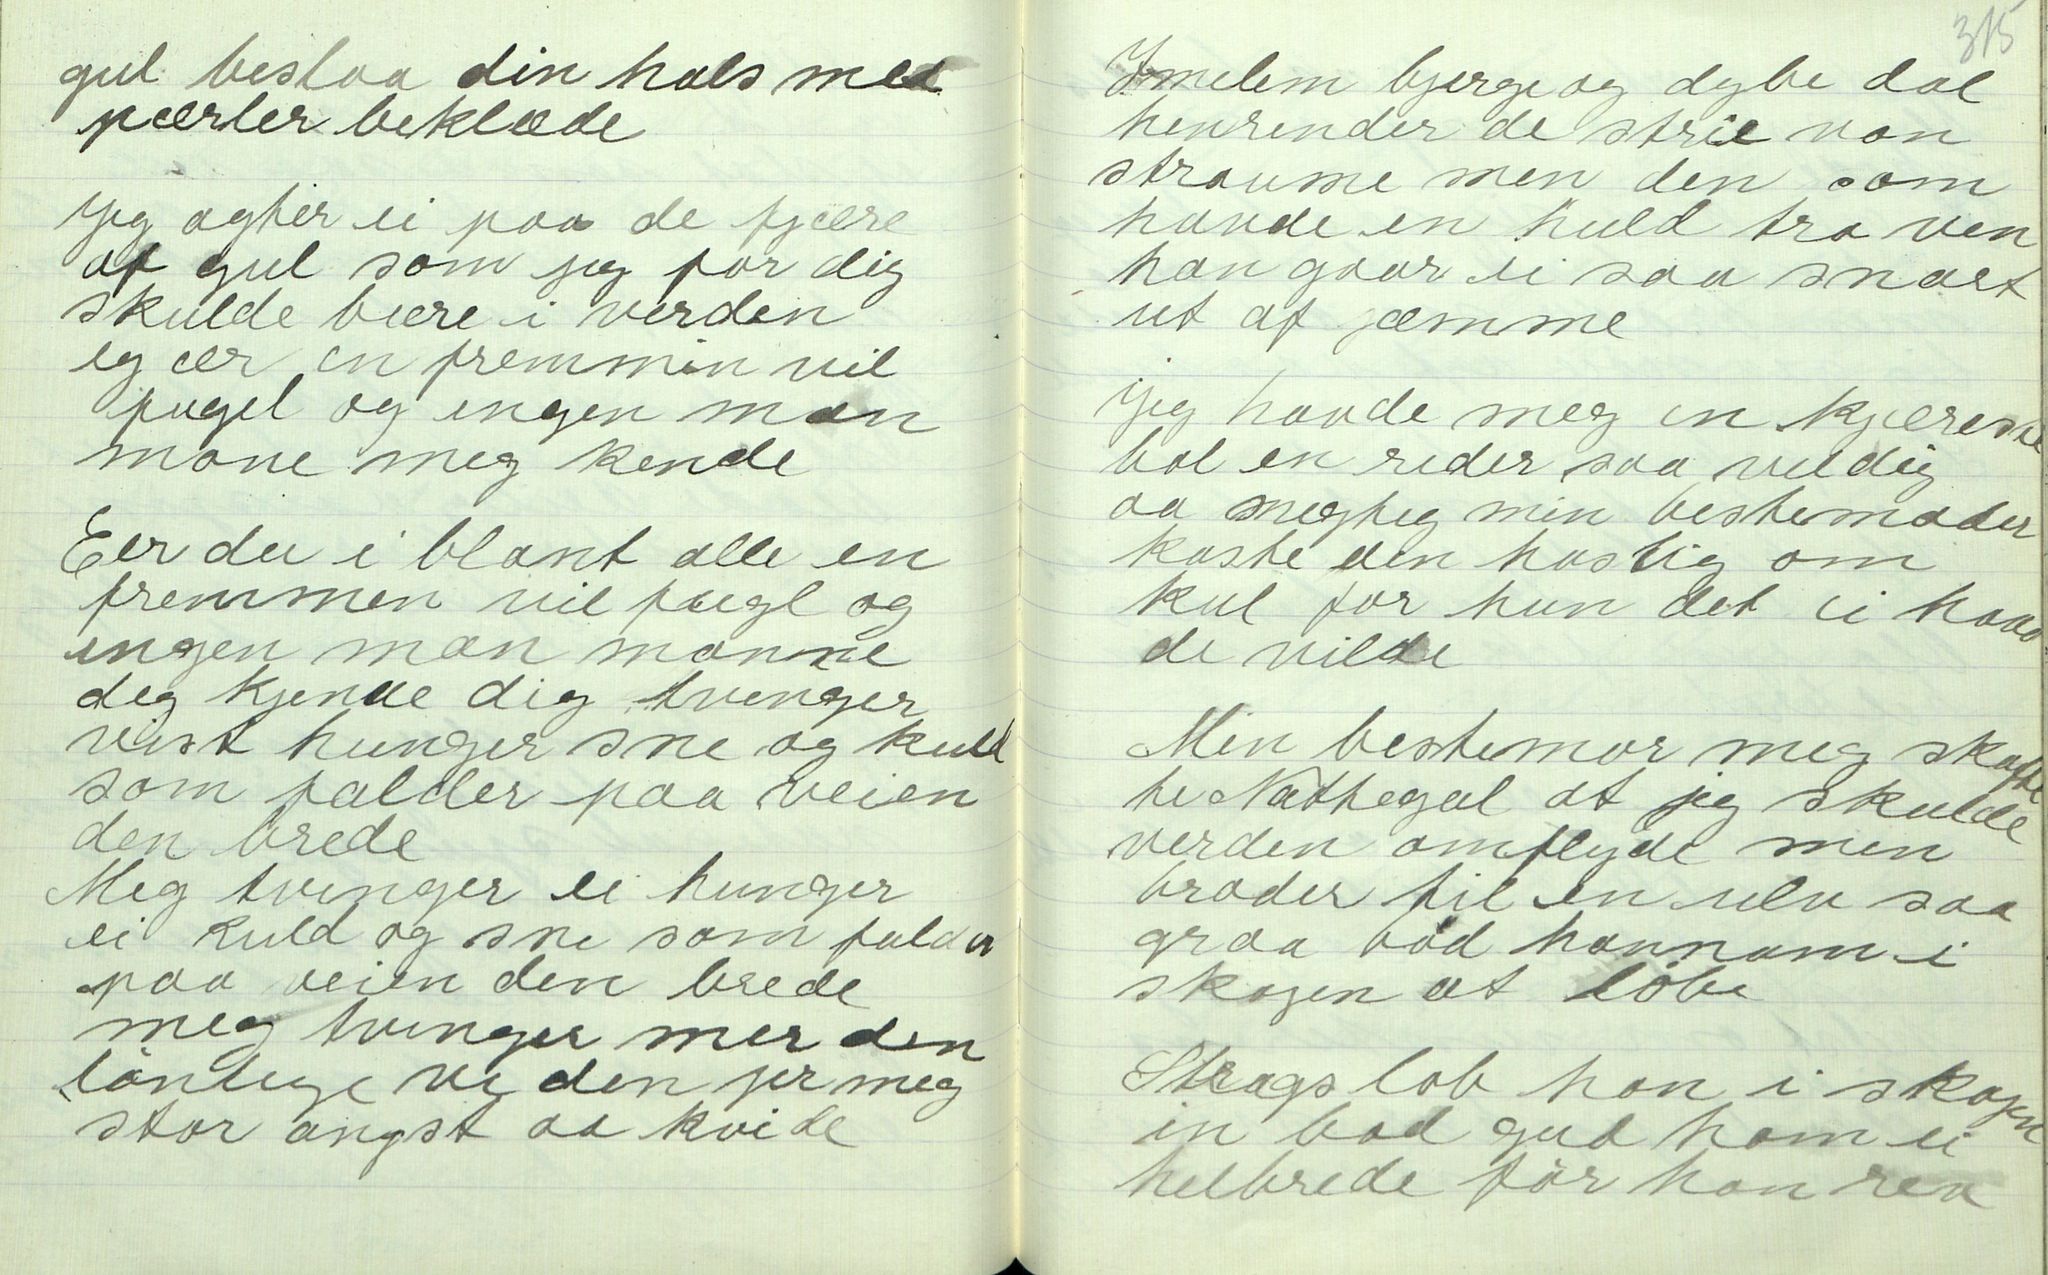 gul beslaa din hals med
pærler beklæde
Jeg agter ei paa de fjære
af gul som jeg for dig
skulde bære i verden
eg ær en fremmin vil
fugel og ingen man
mone meg kende
Eer du i blant alle en
fremmen vil fugl og
ingen man monne
deg kjende dig tvinger
vist hunger sne og kuld
som falder paa veien
den brede
Meg tvinger ei hunger
ei kuld og sne som falder
paa veien den brede
meg tvinger mer den
lønlige ve den jer meg
stor angst aa kvide
315
Imelem bjerge og dybe dal
henrender de strie van
straume men den som
havde en huld tro ven
han gaar ei saa snart
ut af jæmme
Jeg havde meg en kjæreste
bol en reder saa veldig
aa megteg min bestemoder
kaste den hastig om
kul for hun det ei hav
de vilde
Min bestemor meg skafte
te Nathegal at jeg skulde
verden omflyde men
broder til en ulv saa
graa bød hannom i
skogen at løbe
Strags løb han i skogen
in bad gud ham ei
helbrede før han rev